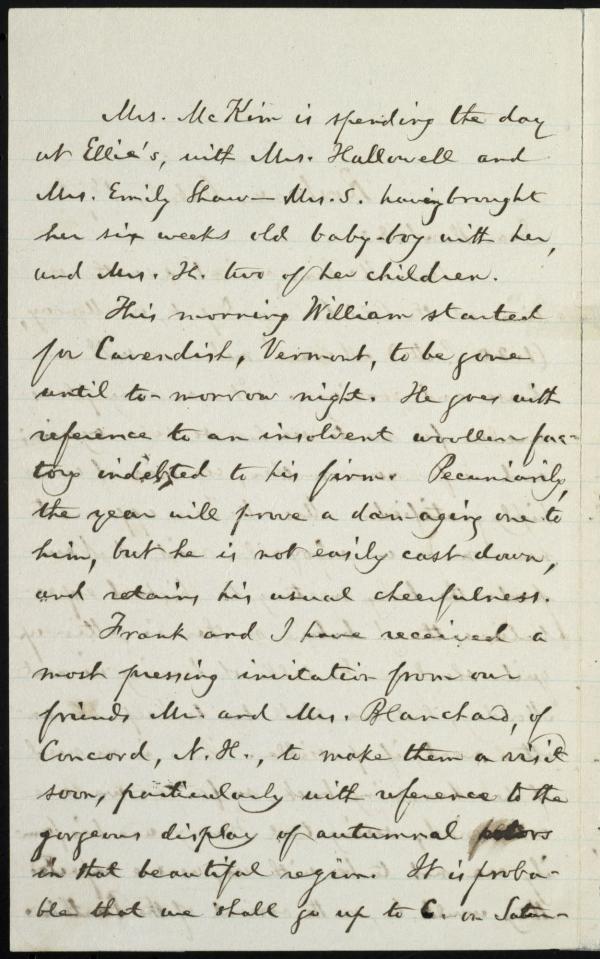 Mrs. McKim is spending the day
at Ellie's, with Mrs. Hallowell and
Mrs. Emily Shaw — Mrs. S. having brought
her six weeks old baby-boy with her,
and Mrs. H. two of her children.
This morning William started
for Cavendish, Vermont, to be gone
until to-morrow night. He goes with
reference to an insolvent woollen fac-
tory indebted to his firm. Pecuniarily,
the year will prove a damaging one to
him, but he is not easily cast down,
and retains his usual cheerfulness.
Frank and I have received a
most pressing invitation from our
friends Mr. and Mrs. Blanchard, of
Concord, N. H., to make them a visit
soon, particularly with reference to the
gorgeous display of autumnal colors
in that beautiful region. It is proba-
ble that we shall go up to C. on Satur-